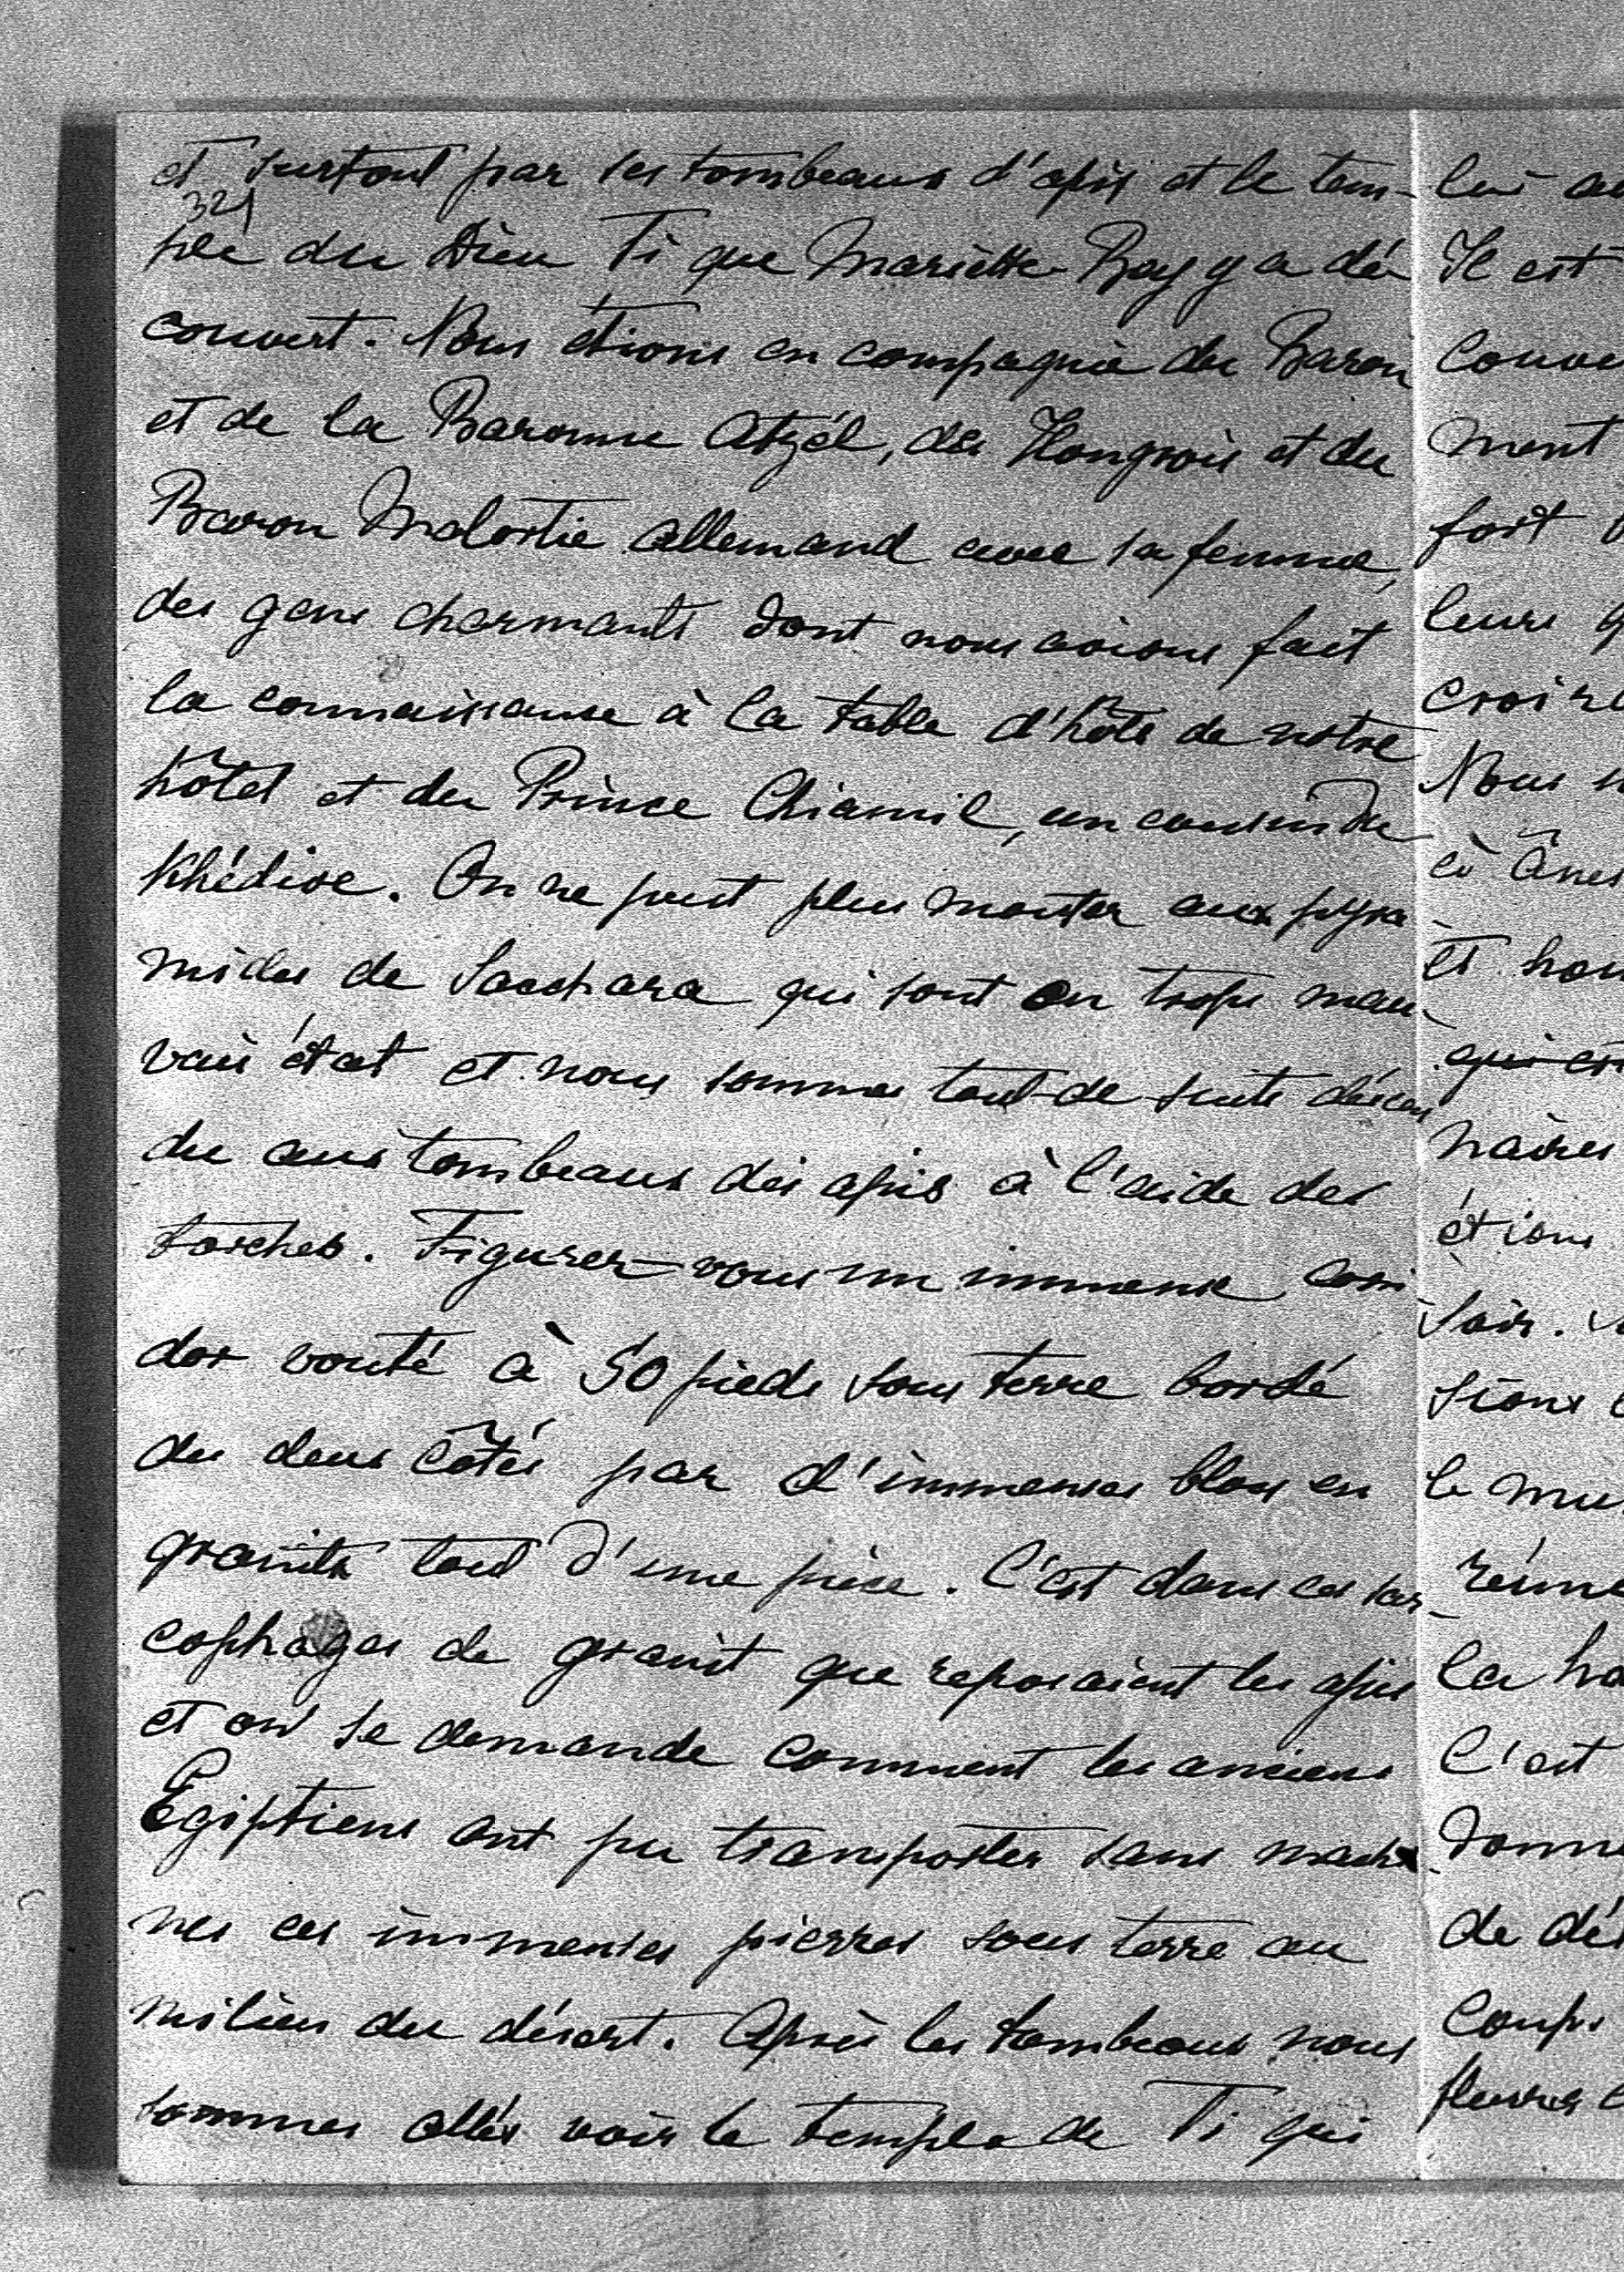 et surtout par ses tombeaux d'apis et le tem-
321
ple du Dieu Ti que Mariette Bey y a dé-
couvert. Nous étions en compagnie du Baron
et de la Baronne Atzél, des Hongrois et du
Baron Malortie allemand avec sa femme,
des gens charmants dont nous avions fait
la connaissance à la table d'hôte de notre
hôtel et du Prince Chiamil, un cousin du
Khédive. On ne peut plus monter aux pyra-
mides de Sacchara qui sont en trop mau-
vais état et nous sommes tout-de-suite descen
du aux tombeaux des apis à l'aide des
torches. Figurez-vous un immense corri-
dor vouté à 50 pieds sous terre bordé
des deux côtés par d'immenses blocs en
granite tout d'une pièce. C'est dans ces sar-
cophages de granit que reposaient les apis
et on se demande comment les anciens
Egiptiens ont pu transporter sans machi
nes ces immenses pierres sous terre au
milieu du désert. Après les tombeaux nous
sommes allés voir le temple de Ti qui
lui
Il est
couve
ment
fort
leurs
croire
Nous
à ânes
et
qui
naires
étions
soir.
sions
le mu
réuni
la
C'est
donne
de dé
coups
fleurs